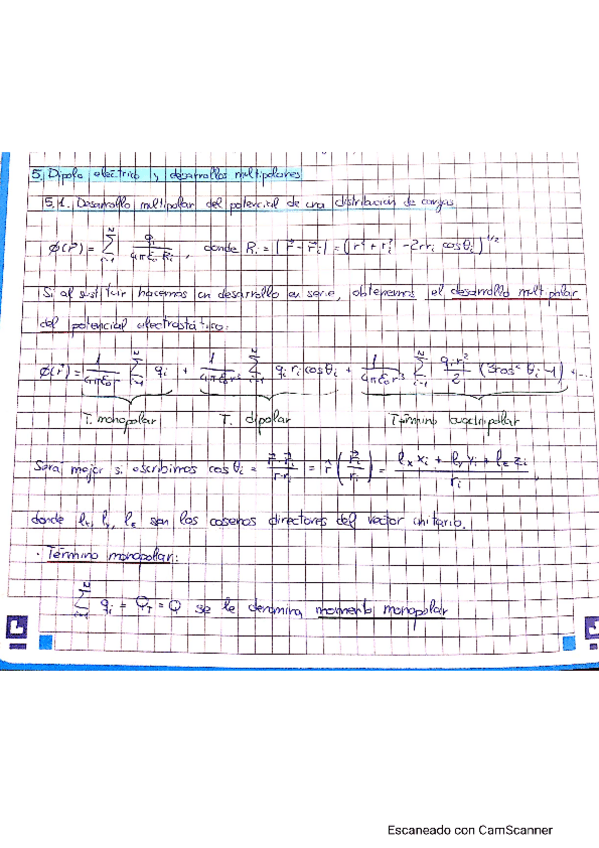 5. Dipolo eléctrico y desarrollos multipolares
5.1. Desarrollo multipolar del potencial de una distribución de cargas
φ(r⃗) = Σ_{i=1}^{N} q_i / (4πε₀ R_i), donde R_i = |r⃗ - r⃗_i| = (r² + r_i² - 2rr_i cosθ_i)^{1/2}
Si al sustituir hacemos un desarrollo en serie, obtenemos el desarrollo multipolar
del potencial electrostático:
φ(r⃗) = 1/(4πε₀r) Σ_{i=1}^{N} q_i + 1/(4πε₀r²) Σ_{i=1}^{N} q_i r_i cosθ_i + 1/(4πε₀r³) Σ_{i=1}^{N} q_i r_i²/2 (3cos²θ_i - 1) + ...
T. monopolar T. dipolar Término cuadripolar
Será mejor si escribimos cosθ_i = (r⃗·r⃗_i)/(r·r_i) = r̂ (r⃗_i/r_i) = (l_x x_i + l_y y_i + l_z z_i)/r_i,
donde l_x, l_y, l_z son los cosenos directores del vector unitario.
· Término monopolar:
Σ_{i=1}^{N} q_i = Q_T = Q se le denomina momento monopolar
Escaneado con CamScanner